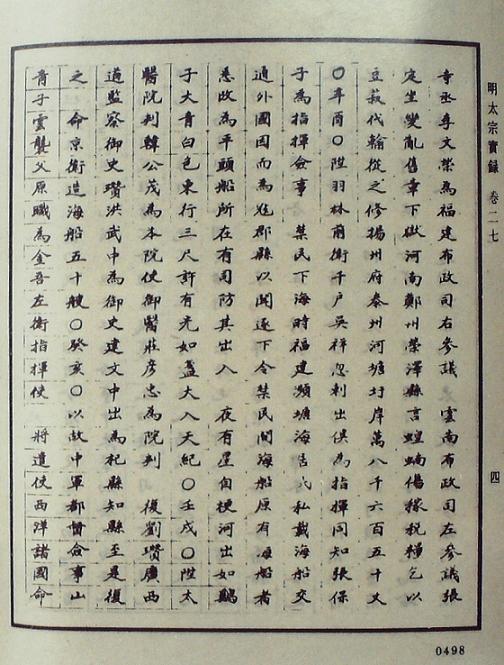 明太宗實錄 卷二七
四
寺丞李文榮為福建布政司右參議 雲南布政司左參議張
定坐變亂舊章下獄河南鄭州滎澤縣言蝗蝻傷稼稅糧乞以
豆菽代輸從之修揚州府泰州河塘圩岸萬八千六百五十丈
〇辛酉〇陞羽林前衛千戶吳祥忽剌出俱為指揮同知張保
子為指揮僉事 禁民下海時福建瀕塘海舍氏私載海船交
通外國因而為寇郡縣以聞遂下令禁民間海船原有海船者
悉改為平頭船所在有司防其出入 夜有星自梗河出如雞
子大青白色東行三尺許有光如盞大入天紀〇壬戌〇陞太
醫院判韓公茂為本院使御醫莊彥忠為院判 復劉瓚廣西
道監察御史瓚洪武中為御史建文中出為杞縣知縣至是復
之 命京衛造海船五十艘〇癸亥〇以故中軍都督僉事山
青子雲襲父原職為金吾左衛指揮使 將遣使西洋諸國命
0498